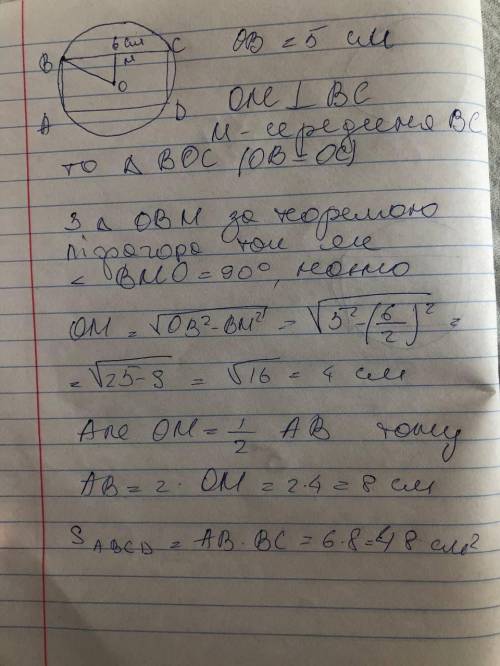 6 см
B
C
OB = 5 см
M
O
A
D
OM ⊥ BC
M - середина BC
то Δ BOC (OB = OC)
З Δ OBM за теоремою
Піфагора
< BMO = 90°, маємо
OM = √(OB² - BM²) = √(5² - (6/2)²) =
= √(25-9) = √16 = 4 см
Але OM = 1/2 AB тому
AB = 2 · OM = 2·4 = 8 см
S ABCD = AB · BC = 6·8 = 48 см²